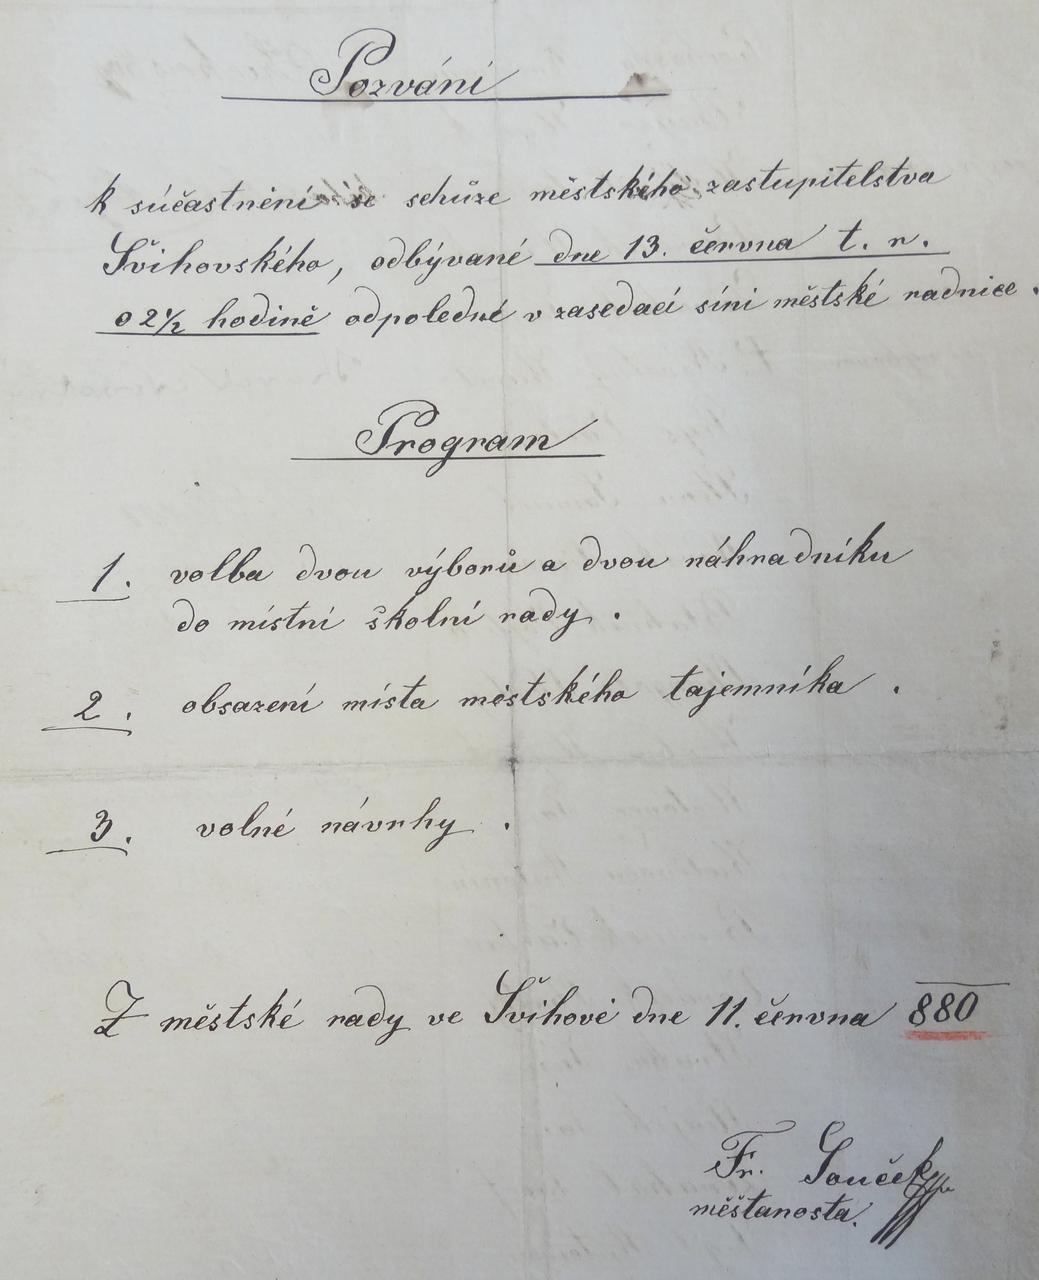 Pozvání
k súčastnění se schůze městského zastupitelstva
Švihovského, odbývané dne 13. června t. r.
o 2½ hodině odpoledne v zasedací síni městské radnice.
Program
1. volba dvou výborů a dvou náhradníku
do místní školní rady.
2. obsazení místa městského tajemníka.
3. volné návrhy.
Z městské rady ve Švihově dne 11. června 880
Fr. Souček
měšťanosta.